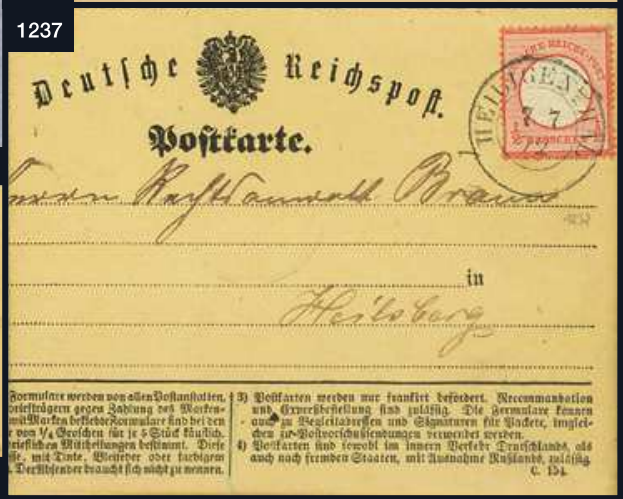 1237
Deutsche Reichspost.
Postkarte.
DEUTSCHE REICHS-POST
HEILIGENBEIL
7 7
72
½ GROSCHEN
Herrn Rechtsanwalt Braun
1237
in
Heilsberg
Formulare werden von allen Postanstalten,
briefträgern gegen Zahlung des Marken-
mit Marken beklebte Formulare sind bei den
r von ¼ Groschen für je 5 Stück käuflich.
brieflichen Mittheilungen bestimmt. Diese
se, mit Tinte, Bleifeder oder farbigem
. Der Absender braucht sich nicht zu nennen.
3) Postkarten werden nur frankirt befördert. Recommandation
und Expreßbestellung sind zulässig. Die Formulare können
auch zu Begleitadressen und Signaturen für Packete, imglei-
chen zu Postvorschußsendungen verwendet werden.
4) Postkarten sind sowohl im innern Verkehr Deutschlands, als
auch nach fremden Staaten, mit Ausnahme Rußlands, zulässig.
C. 154.